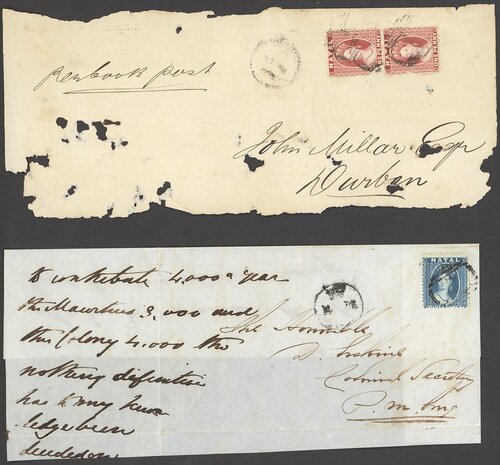 NATAL NATAL
ONE PENNY ONE PENNY
Per book post
John Millar Esqr
Durban
to contribute 4,000 a year
the Mauritius 3,000 and
this Colony 4.000 tho
nothing definitive
has to my know
ledge been
decided on
NATAL
The Honorable
D. Erskine
Colonial Secretary
P. m. burg